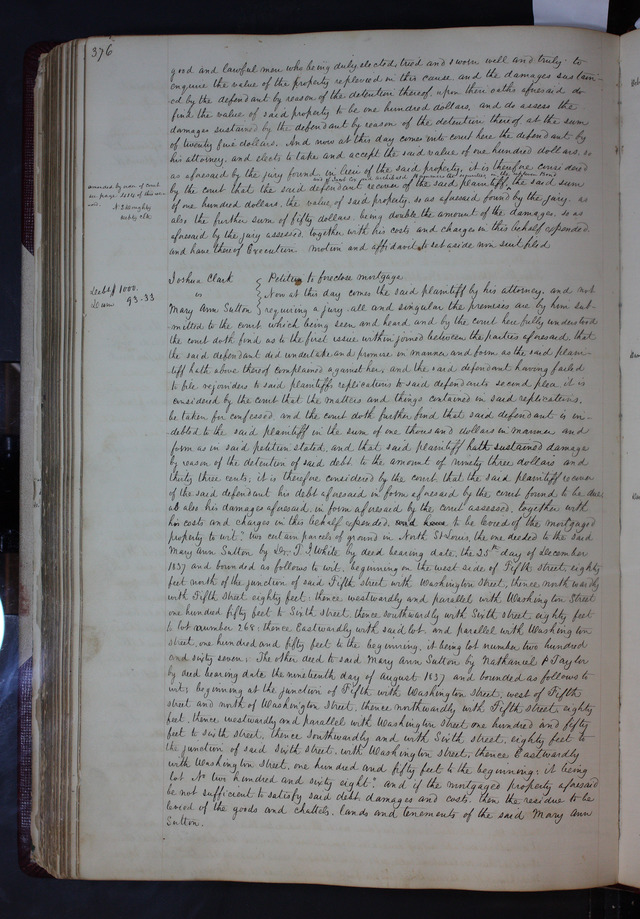 376
good and lawful men who being duly elected, tried and sworn well and truly to
enquire the value of the property replevied in this cause and the damages sustain-
ed by the defendant by reason of the detention thereof, upon their oaths aforesaid do
find the value of said property to be one hundred dollars, and do assess the
damages sustained by the defendant by reason of the detention thereof at the sum
of twenty five dollars. And now at this day comes into court here the defendant by
his attorney, and elects to take and accept the said value of one hundred dollars, so
as aforesaid by the jury found in lieu of the said property, it is therefore considered
by the court that the said defendant recover of the said plaintiff, the said sum
of one hundred dollars, the value of said property, so as aforesaid found by the jury, as
also the further sum of fifty dollars, being double the amount of the damages, so as
aforesaid by the jury assessed, together with his costs and charges in this behalf expended
and have thereof Execution. Motion and affidavit to set aside non suit filed
amended by order of Court
see page
Debt $1000.
Dam 93.33
Joshua Clark
vs
Mary Ann Sutton
Petition to foreclose mortgage
Now at this day comes the said plaintiff by his attorney, and not
requiring a jury all and singular the premises are by him sub-
mitted to the court, which being seen and heard and by the court here fully understood
the court doth find as to the first issue within joined between the parties aforesaid, that
the said defendant did undertake and promise in manner and form as the said plain-
tiff hath above thereof complained against her, and the said defendant having failed
to file rejoinders to said plaintiffs replications to said defendants second plea it is
considered by the court that the matters and things contained in said replications,
be taken for confessed and the court doth further find that said defendant is in-
debted to the said plaintiff in the sum of one thousand dollars in manner and
form as in said petition stated, and that said plaintiff hath sustained damage
by reason of the detention of said debt to the amount of ninety three dollars and
thirty three cents; it is therefore considered by the court, that the said plaintiff recover
of the said defendant his debt aforesaid in form aforesaid by the court found to be due
as also his damages aforesaid, in form aforesaid by the court assessed, together with
his costs and charges in this behalf expended, to be levied of the mortgaged
property to wit: two certain parcels of ground in North St Louis, the one deeded to the said
Mary Ann Sutton by Dr. T. J. White by deed bearing date, the 25th day of December
1837 and bounded as follows to wit, beginning on the west side of Fifth street, eighty
feet north of the junction of said Fifth street with Washington Street, thence northwardly
with Fifth street eighty feet; thence westwardly and parallel with Washington Street
one hundred fifty feet to Sixth street, thence southwardly with Sixth street, eighty feet
to lot number 268; thence Eastwardly with said lot, and parallel with Washington
street, one hundred and fifty feet to the beginning, it being lot number two hundred
and sixty seven; The other deed to said Mary Ann Sutton by Nathaniel P Taylor
by deed bearing date the nineteenth day of August 1837 and bounded as follows to
wit; beginning at the junction of Fifth with Washington street, west of Fifth
street and north of Washington street, thence northwardly with Fifth street, eighty
feet, thence westwardly and parallel with Washington street one hundred and fifty
feet to sixth street, thence southwardly and with Sixth street, eighty feet to
the junction of said Sixth street, with Washington street, thence Eastwardly
with Washington street, one hundred and fifty feet to the beginning; it being
lot No two hundred and sixty eight; and if the mortgaged property aforesaid
be not sufficient to satisfy said debt, damages and costs, then the residue to be
levied of the goods and chattels, lands and tenements of the said Mary Ann
Sutton.